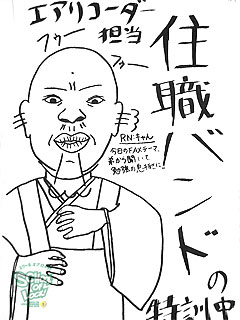 エアリコーダー
担当
フゥー
フゥー
住職バンド
の
特訓中
RN:キャん
今日のFAXテーマ、
弟から聞いて
勉強の息抜きに!